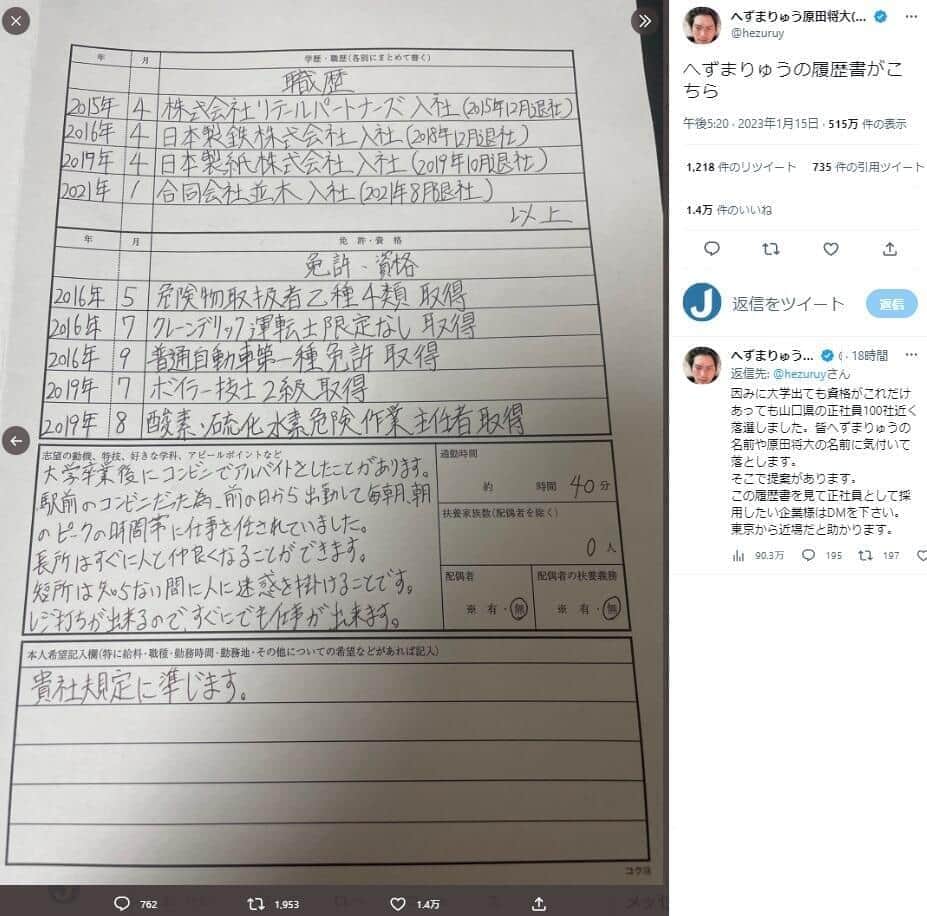 年 月 学歴・職歴(各別にまとめて書く)
職歴
2015年 4 株式会社リテールパートナーズ入社(2015年12月退社)
2016年 4 日本製鉄株式会社入社(2018年12月退社)
2019年 4 日本製紙株式会社入社(2019年10月退社)
2021年 1 合同会社並木入社(2021年8月退社)
以上
年 月 免許・資格
免許・資格
2016年 5 危険物取扱者乙種4類 取得
2016年 7 クレーンデリック運転士限定なし 取得
2016年 9 普通自動車第一種免許 取得
2019年 7 ボイラー技士2級 取得
2019年 8 酸素・硫化水素危険作業主任者 取得
志望の動機、特技、好きな学科、アピールポイントなど
大学卒業後にコンビニでアルバイトをしたことがあります。
駅前のコンビニだった為、前の日から出勤して毎朝、朝
のピークの時間帯に仕事を任されていました。
長所はすぐに人と仲良くなることができます。
短所は知らない間に人に迷惑を掛けることです。
レジ打ちが出来るので、すぐにでも仕事が出来ます。
通勤時間
約 時間 40分
扶養家族数(配偶者を除く)
0人
配偶者
※ 有・無
配偶者の扶養義務
※ 有・無
本人希望記入欄(特に給料・職種・勤務時間・勤務地・その他についての希望などがあれば記入)
貴社規定に準じます。
コクヨ
762 1,953 1.4万
へずまりゅう原田将大(...
@hezuruy
へずまりゅうの履歴書がこ
ちら
午後5:20 · 2023年1月15日 · 515万 件の表示
1,218 件のリツイート 735 件の引用ツイート
1.4万 件のいいね
J 返信をツイート 返信
へずまりゅう... · 18時間
返信先: @hezuruyさん
因みに大学出ても資格がこれだけ
あっても山口県の正社員100社近く
落選しました。皆へずまりゅうの
名前や原田将大の名前に気付いて
落とします。
そこで提案があります。
この履歴書を見て正社員として採
用したい企業様はDMを下さい。
東京から近場だと助かります。
90.3万 195 197